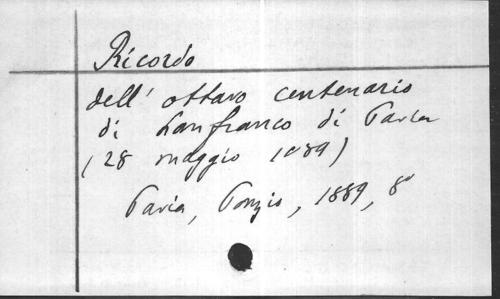 Ricordo
dell' ottavo centenario
di Lanfranco di Pavia
(28 maggio 1089)
Pavia, Ponzio, 1889, 8°